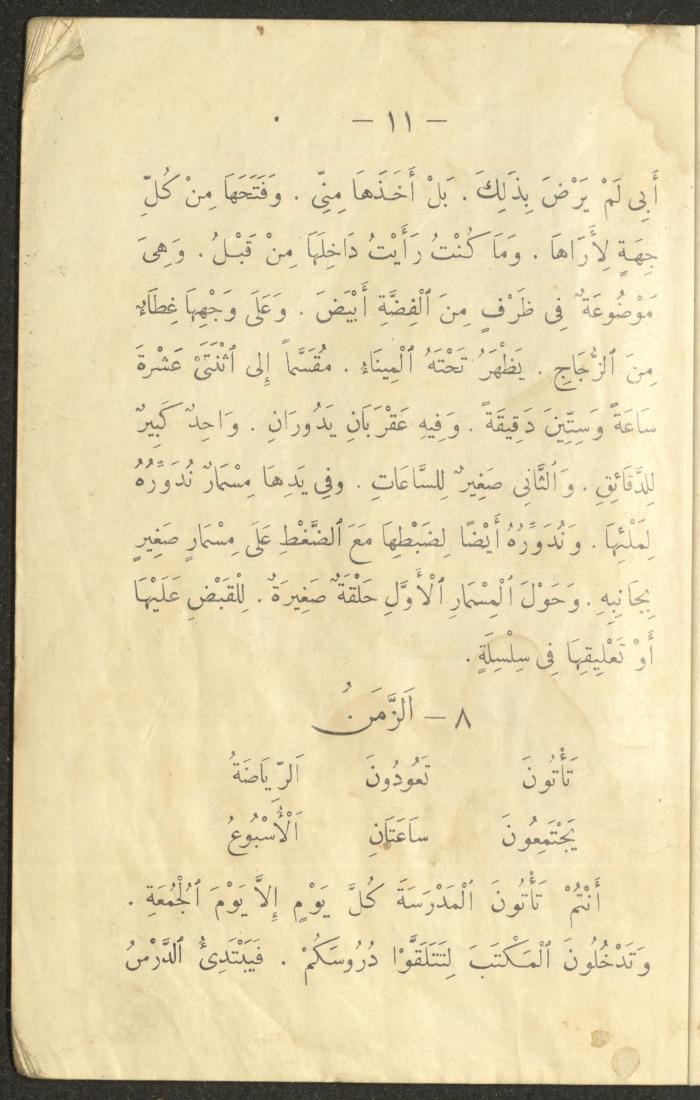 — ١١ —
أَبِى لَمْ يَرْضَ بِذَلِكَ . بَلْ أَخَذَهَا مِنِّى . وَفَتَحَهَا مِنْ كُلِّ
جِهَةٍ لِأَرَاهَا . وَمَا كُنْتُ رَأَيْتُ دَاخِلَهَا مِنْ قَبْلُ . وَهِىَ
مَوْضُوعَةٌ فِى ظَرْفٍ مِنَ ٱلْفِضَّةِ أَبْيَضَ . وَعَلَى وَجْهِهَا غِطَاءٌ
مِنَ ٱلزُّجَاجِ . يَظْهَرُ تَحْتَهُ ٱلْمِينَاءُ . مُقَسَّماً إِلى ٱثْنَتَىْ عَشْرةَ
سَاعَةً وَسِتِّينَ دَقِيقَةً . وَفِيهِ عَقْرَبَانِ يَدُورَانِ . وَاحِدٌ كَبِيرٌ
لِلدَّقَائِقِ . وَٱلثَّانِى صَغِيرٌ لِلسَّاعَاتِ . وفِى يَدِهَا مِسْمَارٌ نُدَوِّرُهُ
لِمَلْئِهَا . وَنُدَوِّرُهُ أَيْضًا لِضَبْطِهَا مَعَ ٱلضَّغْطِ عَلَى مِسْمَارٍ صَغِيرٍ
بِجَانِبِهِ . وَحَوْلَ ٱلْمِسْمَارِ ٱلْأَوَّلِ حَلْقَةٌ صَغِيرَةٌ . لِلْقَبْضِ عَلَيْهَا
أَوْ تَعْلِيقِهَا فِى سِلْسِلَةٍ .
٨ — اَلزَّمَنُ
تَأْتُونَ تَعُودُونَ اَلرِّيَاضَةُ
يَجْتَمِعُونَ سَاعَتَانِ اَلْأُسْبُوعُ
أَنْتُمْ تَأْتُونَ ٱلْمَدْرَسَةَ كُلَّ يَوْمٍ إِلاَّ يَوْمَ ٱلْجُمُعَةِ .
وَتَدْخُلُونَ ٱلْمَكْتَبَ لِتَتَلَقَّوْا دُرُوسَكُمْ . فَيَبْتَدِئُ ٱلدَّرْسُ